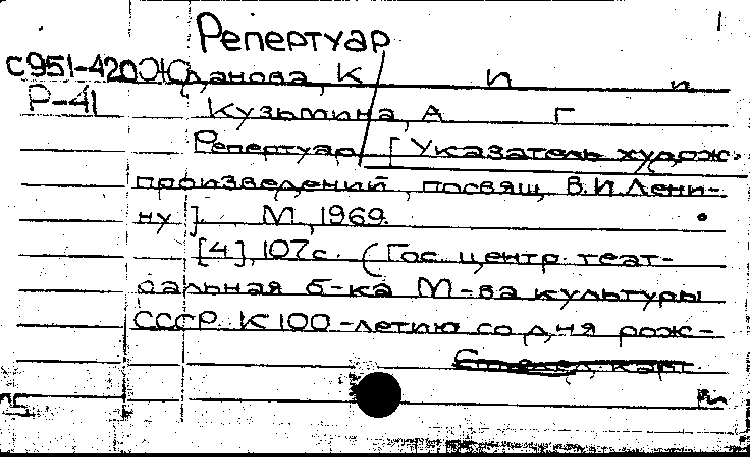 Репертуар
С951-420 Жданова, К И и
Р-41
Кузьмина, А. Г
Репертуар [Указатель худож.
произведений, посвящ. В.И. Лени-
ну]. М., 1969.
[4], 107с. (Гос. центр. теат-
ральная б-ка М-ва культуры
СССР. К 100-летию со дня рож-
След. карт.